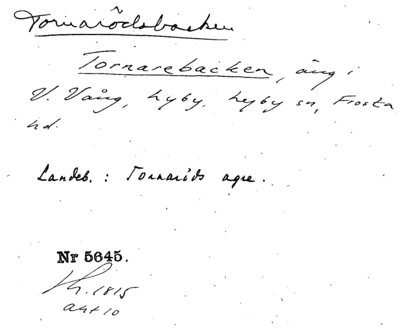 Tornarödsbacken
Tornarebacken, äng i
V. Vång, Hyby, Hyby sn, Frosta
hd.
Landeb. : Tornarids agre.
Nr 5645.
1815
akt 10